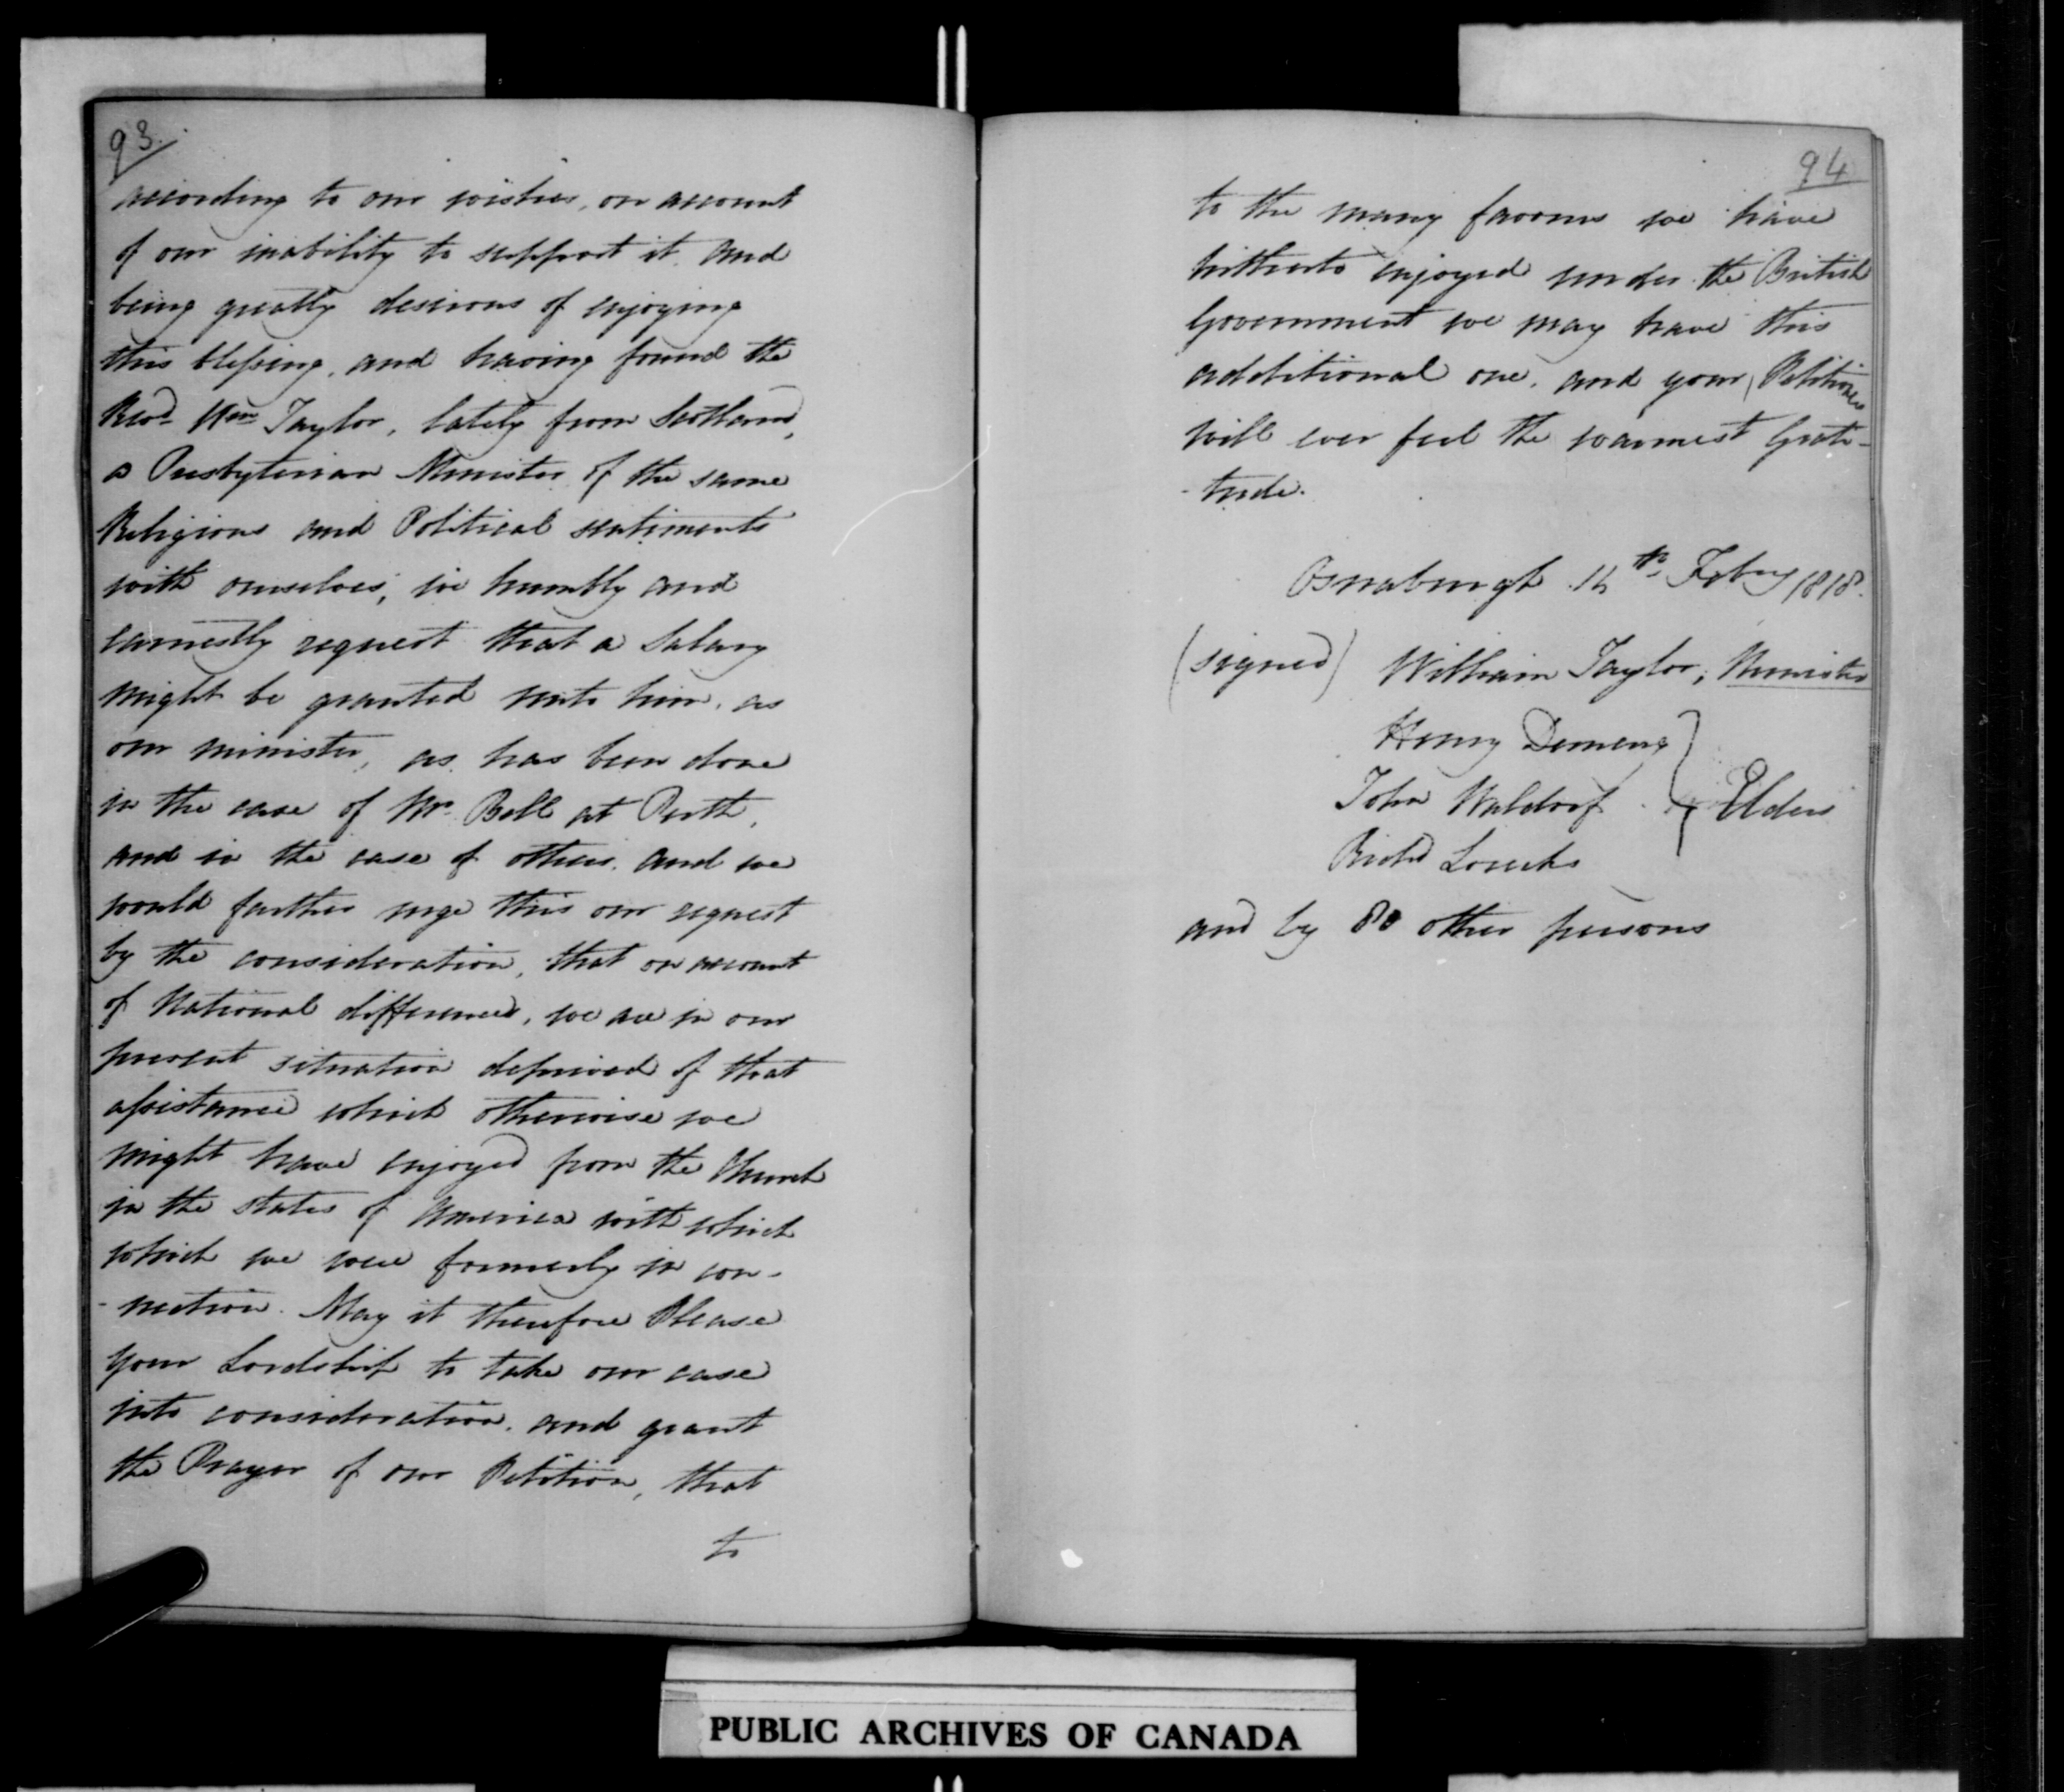 93.
according to our wishes, on account
of our inability to support it and
being greatly desirous of enjoying
this blessing, and having found the
Revd Wm Taylor, lately from Scotland,
a Presbyterian Minister of the same
Religious and Political sentiments
with ourselves, we humbly and
earnestly request that a Salary
might be granted unto him, as
our minister, as has been done
in the case of Mr Bell at Perth,
and in the case of others. and we
would farther urge this our request
by the consideration, that on account
of National differences, we are in our
present situation deprived of that
assistance which otherwise we
might have enjoyed from the Church
in the States of America with which
which we were formerly in con-
-nection. May it therefore Please
your Lordship to take our case
into consideration, and grant
the Prayer of our Petition, that
to
94
to the many favours we have
hitherto enjoyed under the British
Government we may have this
additional one, and your Petitioners
will ever feel the warmest Grati-
-tude.
Osnaburgh th Feby 1818.
(signed) William Taylor, Minister
Henry
John Waldorf Elders
Richd Loucks
and by 80 other persons
PUBLIC ARCHIVES OF CANADA